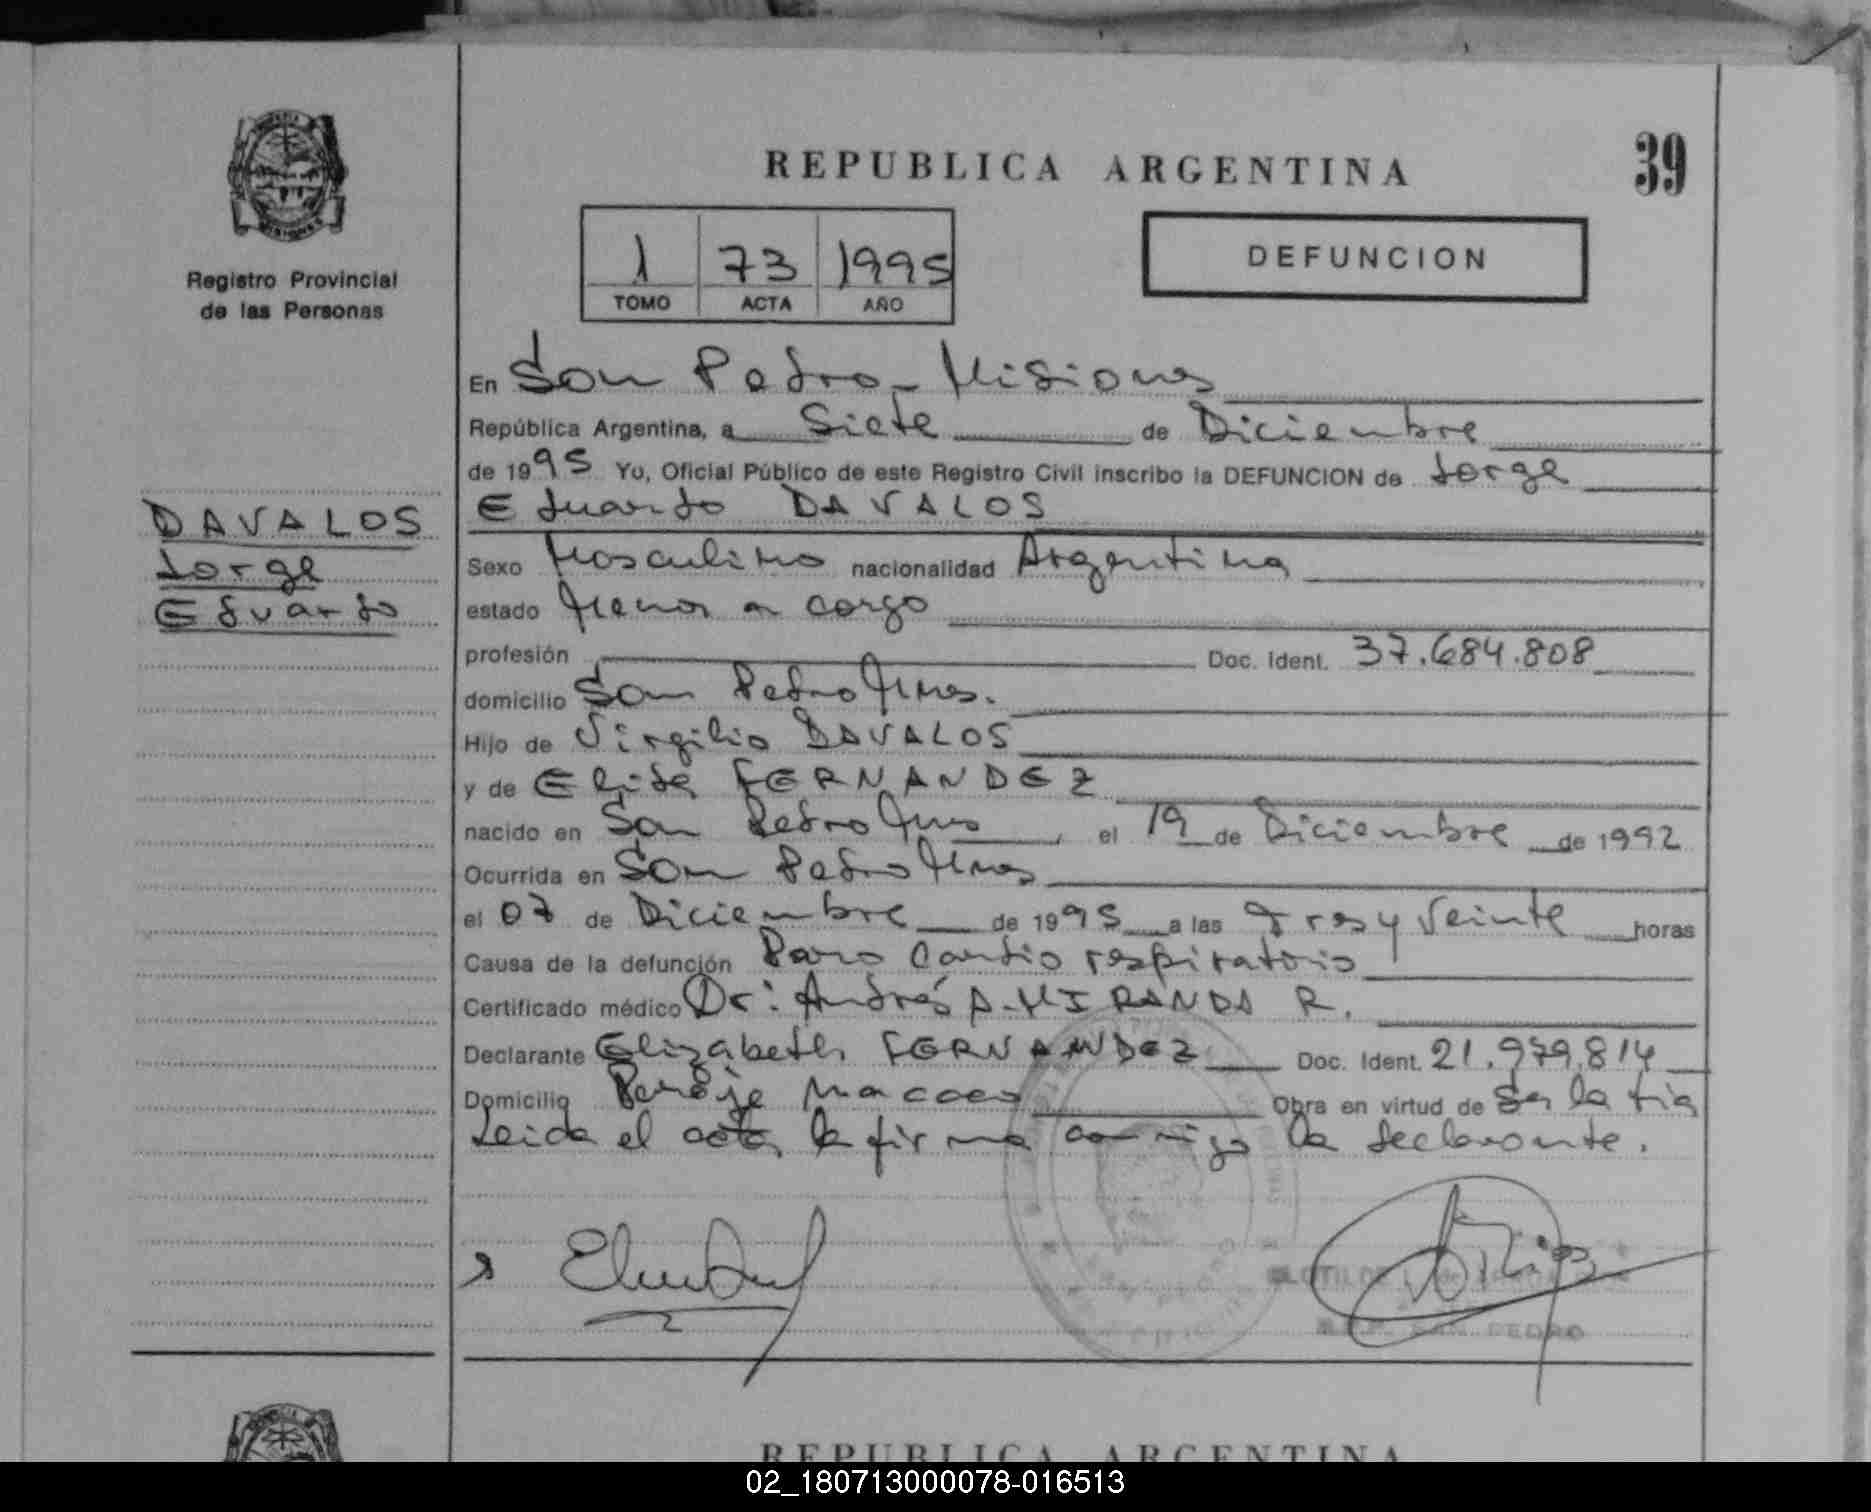 REPUBLICA ARGENTINA
39
Registro Provincial
de las Personas
1 73 1995
TOMO ACTA AÑO
DEFUNCION
En San Pedro - Misiones
República Argentina, a Siete de Diciembre
de 1995 Yo, Oficial Público de este Registro Civil inscribo la DEFUNCION de Jorge
Eduardo DAVALOS
DAVALOS
Jorge
Eduardo
Sexo Masculino nacionalidad Argentina
estado Menor a cargo
profesión Doc. Ident. 37.684.808
domicilio San Pedro Mnes.
Hijo de Virgilio DAVALOS
y de Elida FERNANDEZ
nacido en San Pedro Mnes, el 19 de Diciembre de 1992
Ocurrida en San Pedro Mnes
el 07 de Diciembre de 1995 a las Tres y Veinte horas
Causa de la defunción Paro Cardio respiratorio
Certificado médico Dr: Andrés A. MIRANDA R.
Declarante Elizabeth FERNANDEZ Doc. Ident. 21.979.814
Domicilio Paraje Macaco Obra en virtud de Ser la tía
Leida el acta, la firma conmigo la declarante.
SAN PEDRO
REPUBLICA ARGENTINA
02_180713000078-016513